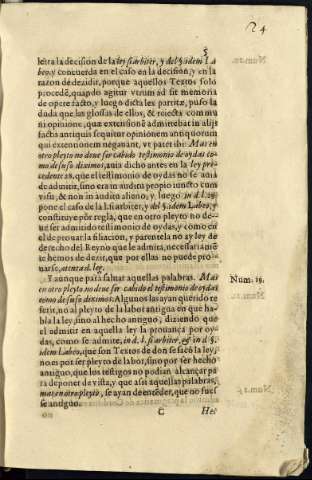 24
5
letra la decision de la ley si arbiter, y del §. idem La
beo, y concuerda en el caso en la decision, y en la
razon de dezidir, porque aquellos Textos solo
procedē, quando agitur vtrum ad sit memoria
de opere facto, y luego dicta lex partitæ, puso la
duda que las glossas de ellos, & reiecta com mu
ni opinione, qua extensionē admitebat in alijs
factis antiquis sequitur opinionem antiquorum
qui extentionem negauant, vt patet ibi: Mas en
otro pleyto no deue ser cabido testimonio de oydas co-
mo de suso diximos, auia dicho antes en la ley prece
dente 28. que el testimonio de oydas no se auia
de admitir, sino era in audita propio iuncto cum
visu, & non in audito alieno, y luego in d. l. 29
pone el caso de la l. si arbiter, y del §. idem Labeo, y
constituye por regla, que en otro pleyto no de-
ue ser admitido testimonio de oydas, y como en
el de prouar la filiacion, y parentela no ay ley de
derecho del Reyno que le admita, necessariamē
te hemos de dezir, que por ellas no puede pro-
uarse, attenta d. leg.
Y aunque para saluar aquellas palabras. Mas
en otro pleyto no deue ser cabido el testimonio de oydas
como de suso diximos: Algunos las ayan querido re
ferir, no al pleyto de la labor antigua en que ha-
bla la ley, sino al hecho antiguo, diziendo que
el admitir en aquella ley la prouança por oy-
das, como se admite, in d. l. si arbiter, & in d. §.
idem Labeo, que son Textos de donde sacò la ley,
no es por ser pleyto de labor, sino por ser hecho
antiguo, que los testigos no podian alcançar pa
ra deponer de vista, y que assi aquellas palabras,
mas en otro pleyto, se ayan de entēder, que no fues
se antiguo.
Num. 19.
C Hec